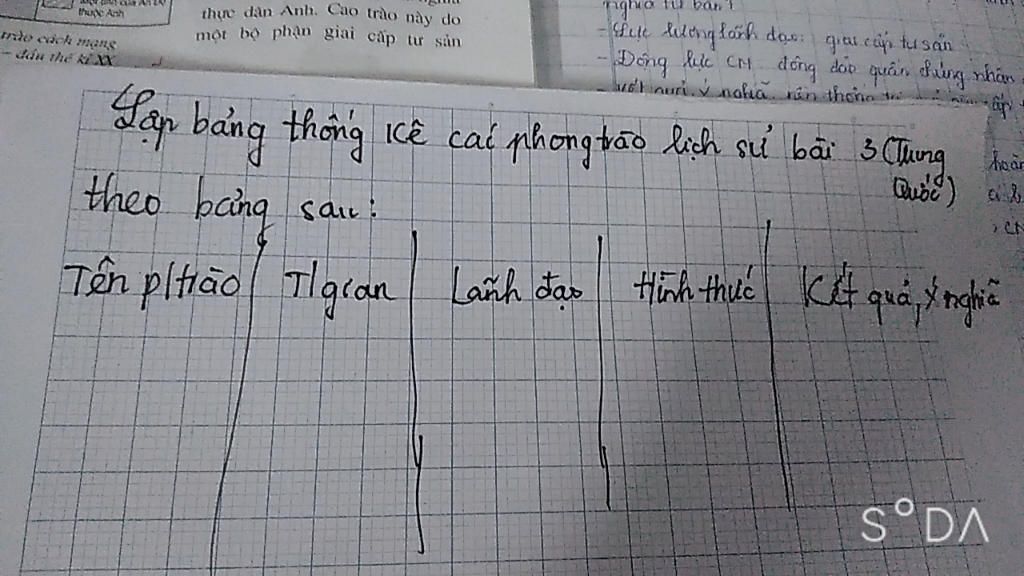 thuộc Anh
trào cách mạng
– đầu thế kỉ XX
thực dân Anh. Cao trào này do
một bộ phận giai cấp tư sản
nghĩa tư bản?
- Lực lượng lãnh đạo: giai cấp tư sản
- Động lực CM đông đảo quần chúng nhân
Lập bảng thống kê các phong trào lịch sử bài 3 (Trung
Quốc)
theo bảng sau:
Tên p/trào T/gian Lãnh đạo Hình thức Kết quả, ý nghĩa
S°DA